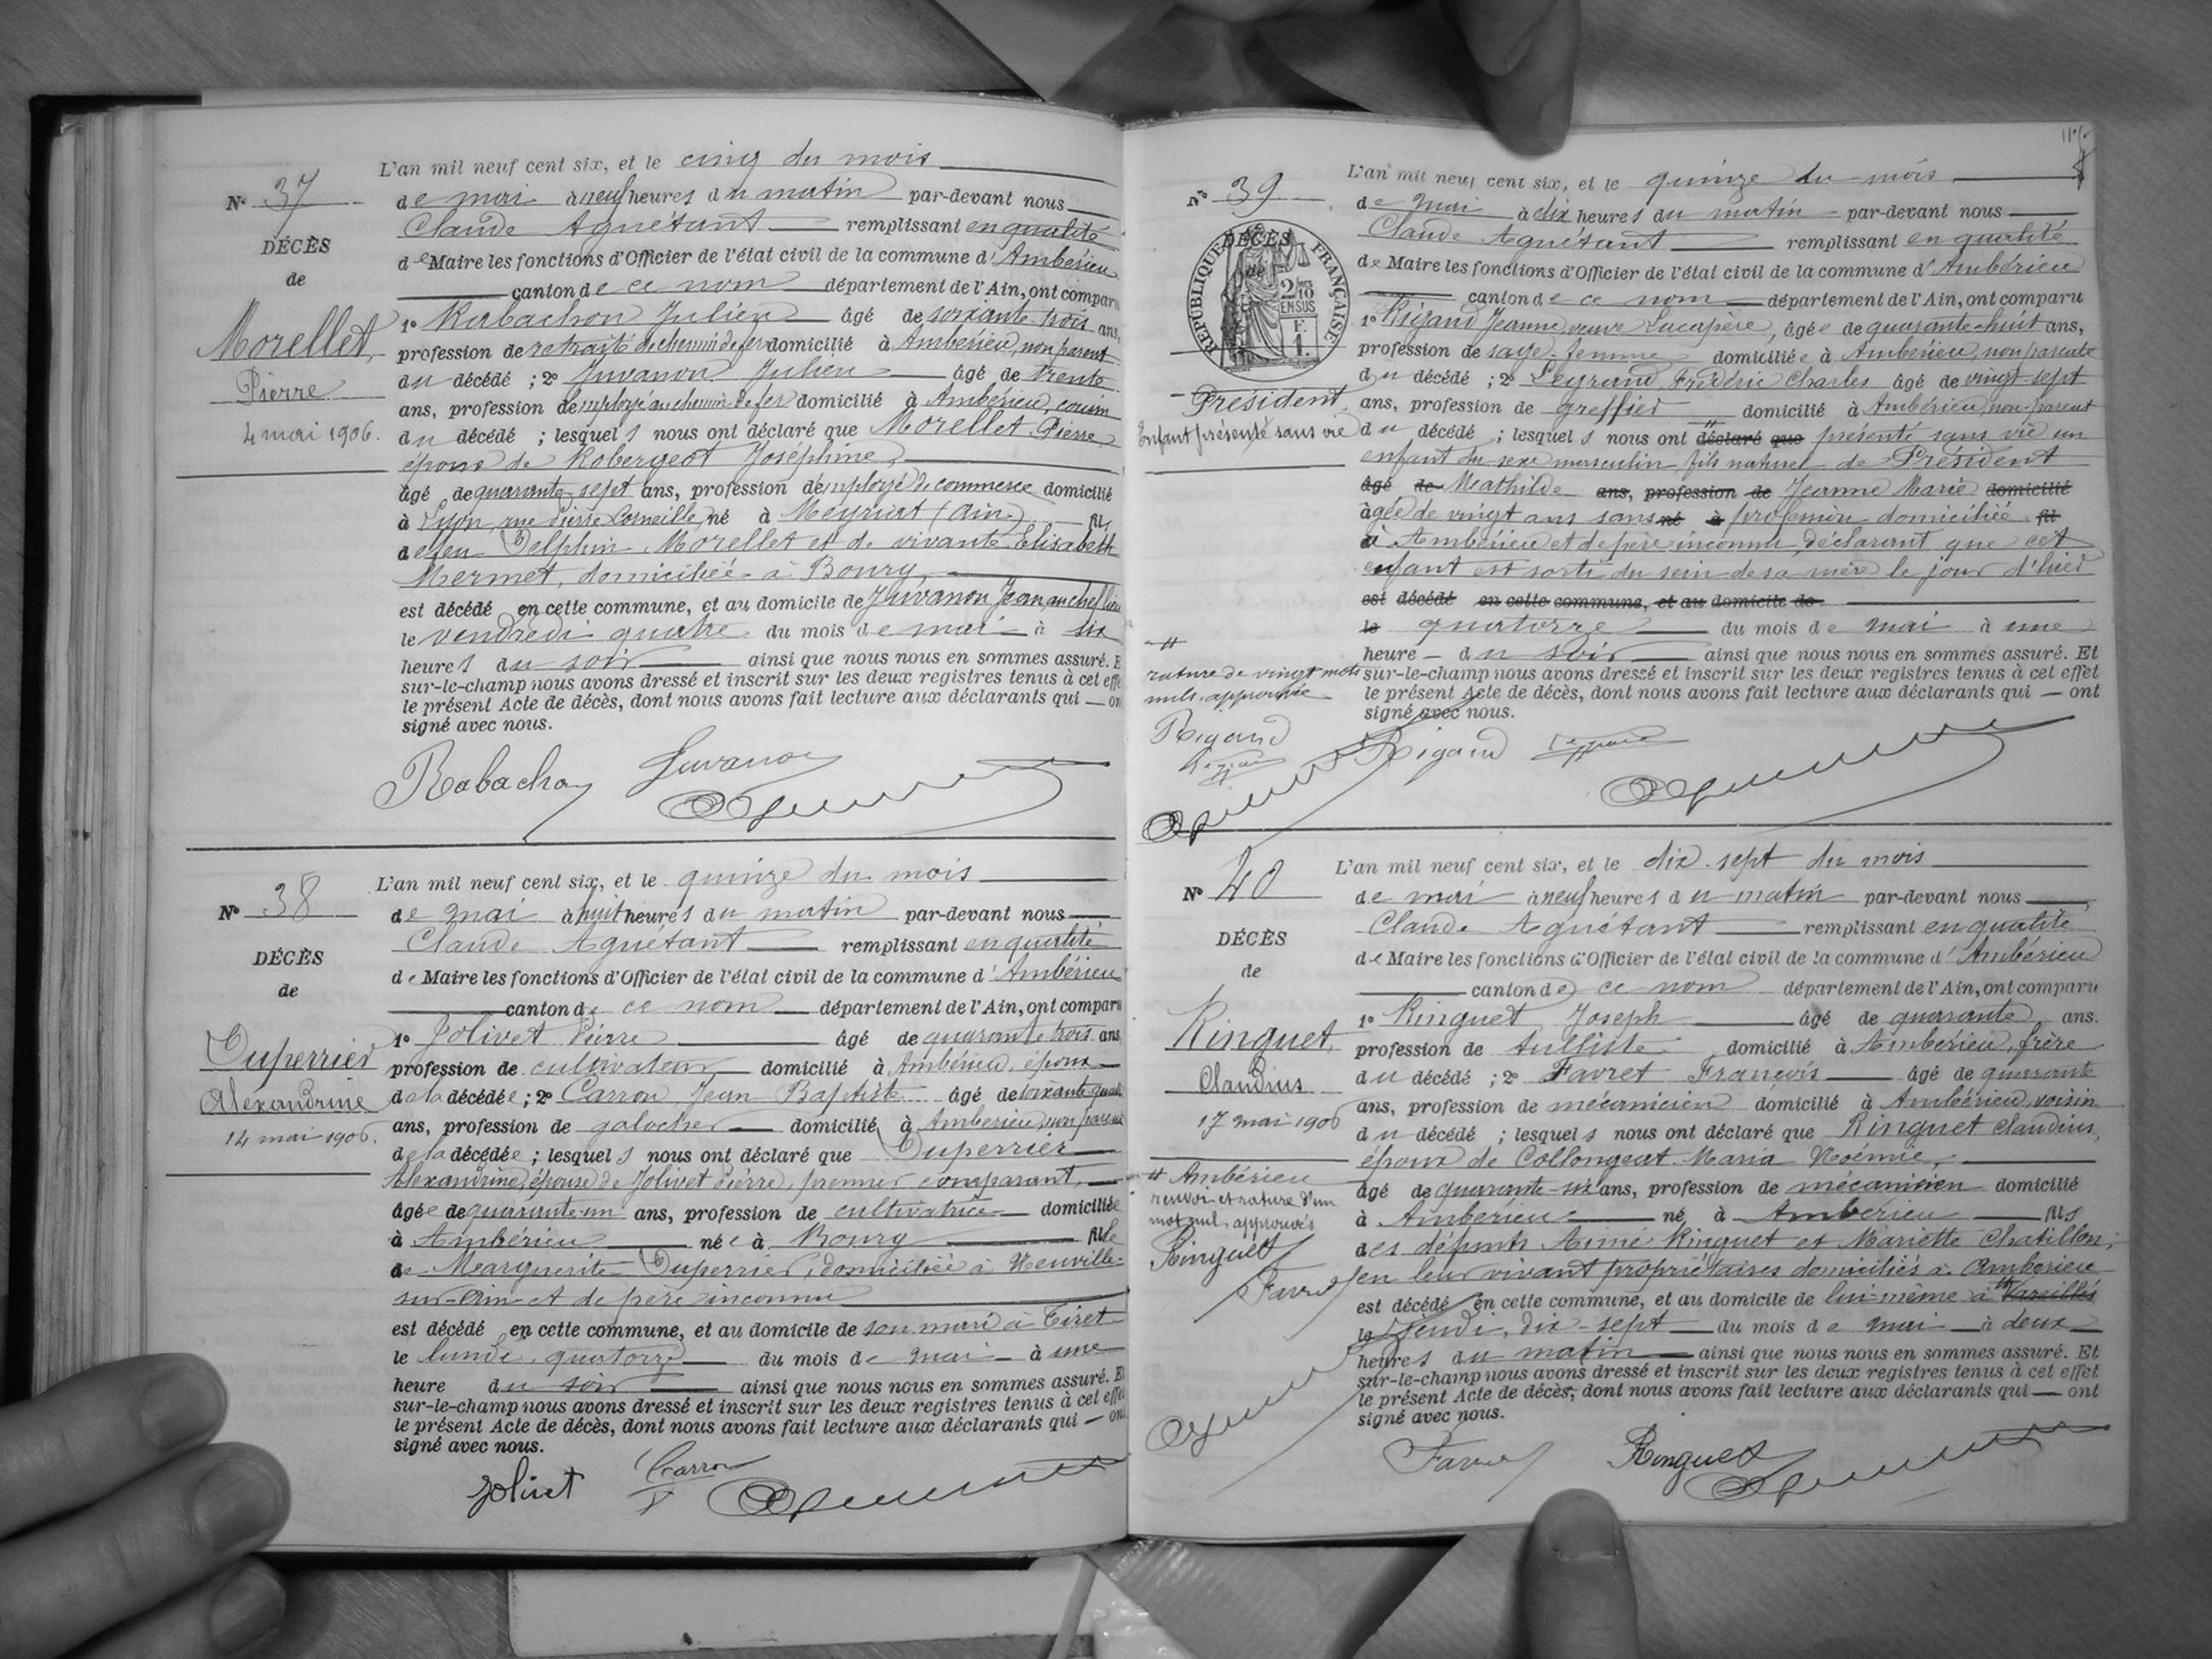 L'an mil neuf cent six, et le cinq du mois
Nº 37
de mai à neuf heures du matin par-devant nous
Claude Aguétant remplissant en qualité
DÉCÈS
de Maire les fonctions d'Officier de l'état civil de la commune d'Ambérieu
de
canton de ce nom département de l'Ain, ont comparu
1º Rabachon Julien âgé de soixante-trois ans,
Morellet,
profession de retraité du chemin de fer domicilié à Ambérieu, non parent
Pierre
du décédé ; 2º Juvanon Julien âgé de trente
ans, profession d'employé au chemin de fer domicilié à Ambérieu, cousin
4 mai 1906.
du décédé ; lesquels nous ont déclaré que Morellet Pierre,
époux de Robergeot Joséphine,
âgé de quarante-sept ans, profession d'employé de commerce domicilié
à Lyon, rue Pierre Corneille, né à Meyriat (Ain) fils
de feu Delphin Morellet et de vivante Elisabeth
Mermet, domiciliée à Bourg,
est décédé en cette commune, et au domicile de Juvanon Jean, au chef lieu
le vendredi quatre du mois de mai à six
heures du soir ainsi que nous nous en sommes assuré. E
sur-le-champ nous avons dressé et inscrit sur les deux registres tenus à cet effe
le présent Acte de décès, dont nous avons fait lecture aux déclarants qui — on
signé avec nous.
Rabachon Juvanon
L'an mil neuf cent six, et le quinze du mois
Nº 38
de mai à huit heures du matin par-devant nous
Claude Aguétant remplissant en qualité
DÉCÈS
de Maire les fonctions d'Officier de l'état civil de la commune d'Ambérieu
de
canton de ce nom département de l'Ain, ont comparu
1º Jolivet Pierre âgé de quarante-trois ans
Duperrier
profession de cultivateur domicilié à Ambérieu, époux
Alexandrine
de la décédée ; 2º Carron Jean Baptiste âgé de soixante quatre
14 mai 1906.
ans, profession de galocher domicilié à Ambérieu, non parent
de la décédée ; lesquels nous ont déclaré que Duperrier
Alexandrine, épouse de Jolivet Pierre, premier comparant,
âgée de quarante-un ans, profession de cultivatrice domiciliée
à Ambérieu née à Bourg fille
de Marguerite Duperrier, domiciliée à Neuville-
sur-Ain et de père inconnu
est décédé en cette commune, et au domicile de son mari à Tiret
le lundi, quatorze du mois de mai à une
heure du soir ainsi que nous nous en sommes assuré. E
sur-le-champ nous avons dressé et inscrit sur les deux registres tenus à cet effe
le présent Acte de décès, dont nous avons fait lecture aux déclarants qui — ont
signé avec nous.
Jolivet Carron
L'an mil neuf cent six, et le quinze du mois
Nº 39
de mai à dix heures du matin par-devant nous
Claude Aguétant remplissant en qualité
DÉCÈS
de
RÉPUBLIQUE FRANÇAISE
2/10 EN SUS
F. 1.
de Maire les fonctions d'Officier de l'état civil de la commune d'Ambérieu
canton de ce nom département de l'Ain, ont comparu
1º Rigaud Jeanne veuve Lacapère, âgée de quarante-huit ans,
profession de sage-femme domiciliée à Ambérieu, non parente
du décédé ; 2º Legrand Frédéric Charles âgé de vingt-sept
Président
ans, profession de greffier domicilié à Ambérieu, non parent
Enfant présenté sans vie
du décédé ; lesquels nous ont déclaré que présenté sans vie un
enfant du sexe masculin, fils naturel de Président
âgé de Mathilde ans, profession de Jeanne Marie domicilié
âgée de vingt ans sans né à profession domiciliée fil
à Ambérieu et de père inconnu, déclarant que cet
enfant est sorti du sein de sa mère le jour d'hier
est décédé en cette commune, et au domicile de
le quatorze du mois de mai à une
heure du soir ainsi que nous nous en sommes assuré. Et
rature de vingt mots
sur-le-champ nous avons dressé et inscrit sur les deux registres tenus à cet effet
nuls approuvée
le présent Acte de décès, dont nous avons fait lecture aux déclarants qui — ont
signé avec nous.
Rigaud
Rigaud
L'an mil neuf cent six, et le dix-sept du mois
Nº 40
de mai à neuf heures du matin par-devant nous
Claude Aguétant remplissant en qualité
DÉCÈS
de Maire les fonctions d'Officier de l'état civil de la commune d'Ambérieu
de
canton de ce nom département de l'Ain, ont comparu
1º Ringuet Joseph âgé de quarante ans.
Ringuet,
profession de tulliste domicilié à Ambérieu, frère
Claudius
du décédé ; 2º Favret François âgé de quarante
ans, profession de mécanicien domicilié à Ambérieu, voisin
17 mai 1906
du décédé ; lesquels nous ont déclaré que Ringuet Claudius,
époux de Collongeat Maria Noémie,
# Ambérieu
âgé de quarante-six ans, profession de mécanicien domicilié
renvoi et rature d'un
mot nul, approuvés
à Ambérieu né à Ambérieu fils
Ringuet
des défunts Aimé Ringuet et Mariette Chatillon,
Favret
en leur vivant propriétaires domiciliés à Ambérieu
est décédé en cette commune, et au domicile de lui-même à # Vareilles
le Jeudi, dix-sept du mois de mai à deux
heures du matin ainsi que nous nous en sommes assuré. Et
sur-le-champ nous avons dressé et inscrit sur les deux registres tenus à cet effet
le présent Acte de décès, dont nous avons fait lecture aux déclarants qui — ont
signé avec nous.
Favret Ringuet